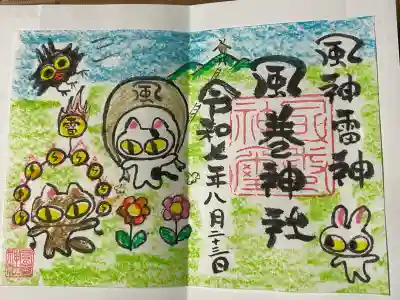 風神雷神
風巻神社
令和七年八月二十三日
風
雷